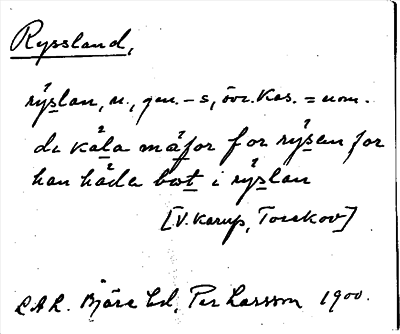 Ryssland,
rýslan, n., gen. -s, övr. kas. = nom.
di kála máfor for rýsen for
han háde bot i rýslan
[V. Karup, Torekov]
L.A.R. Bjäre hd, Per Larsson 1900.